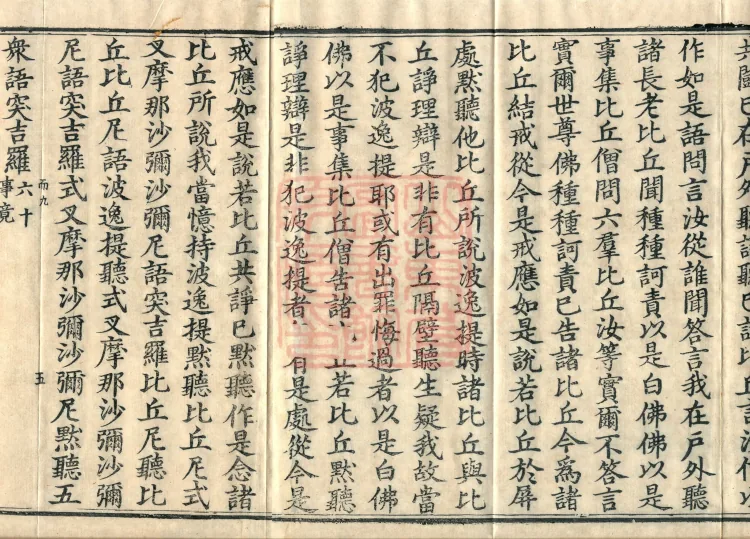 作如是語問言汝從誰聞答言我在戶外聽
諸長老比丘聞種種訶責以是白佛佛以是
事集比丘僧問六羣比丘汝等實爾不答言
實爾世尊佛種種訶責已告諸比丘今爲諸
比丘結戒從今是戒應如是說若比丘於屏
處默聽他比丘所說波逸提時諸比丘與比
丘諍理辯是非有比丘隔壁聽生疑我故當
不犯波逸提耶或有出罪悔過者以是白佛
佛以是事集比丘僧告諸若比丘默聽
諍理辯是非犯波逸提者是處從今是
戒應如是說若比丘共諍已默聽作是念諸
比丘所說我當憶持波逸提默聽比丘尼式
叉摩那沙彌沙彌尼語突吉羅比丘尼聽比
丘比丘尼語波逸提聽式叉摩那沙彌沙彌
尼語突吉羅式叉摩那沙彌沙彌尼默聽五
而九 五
衆語突吉羅六十事竟